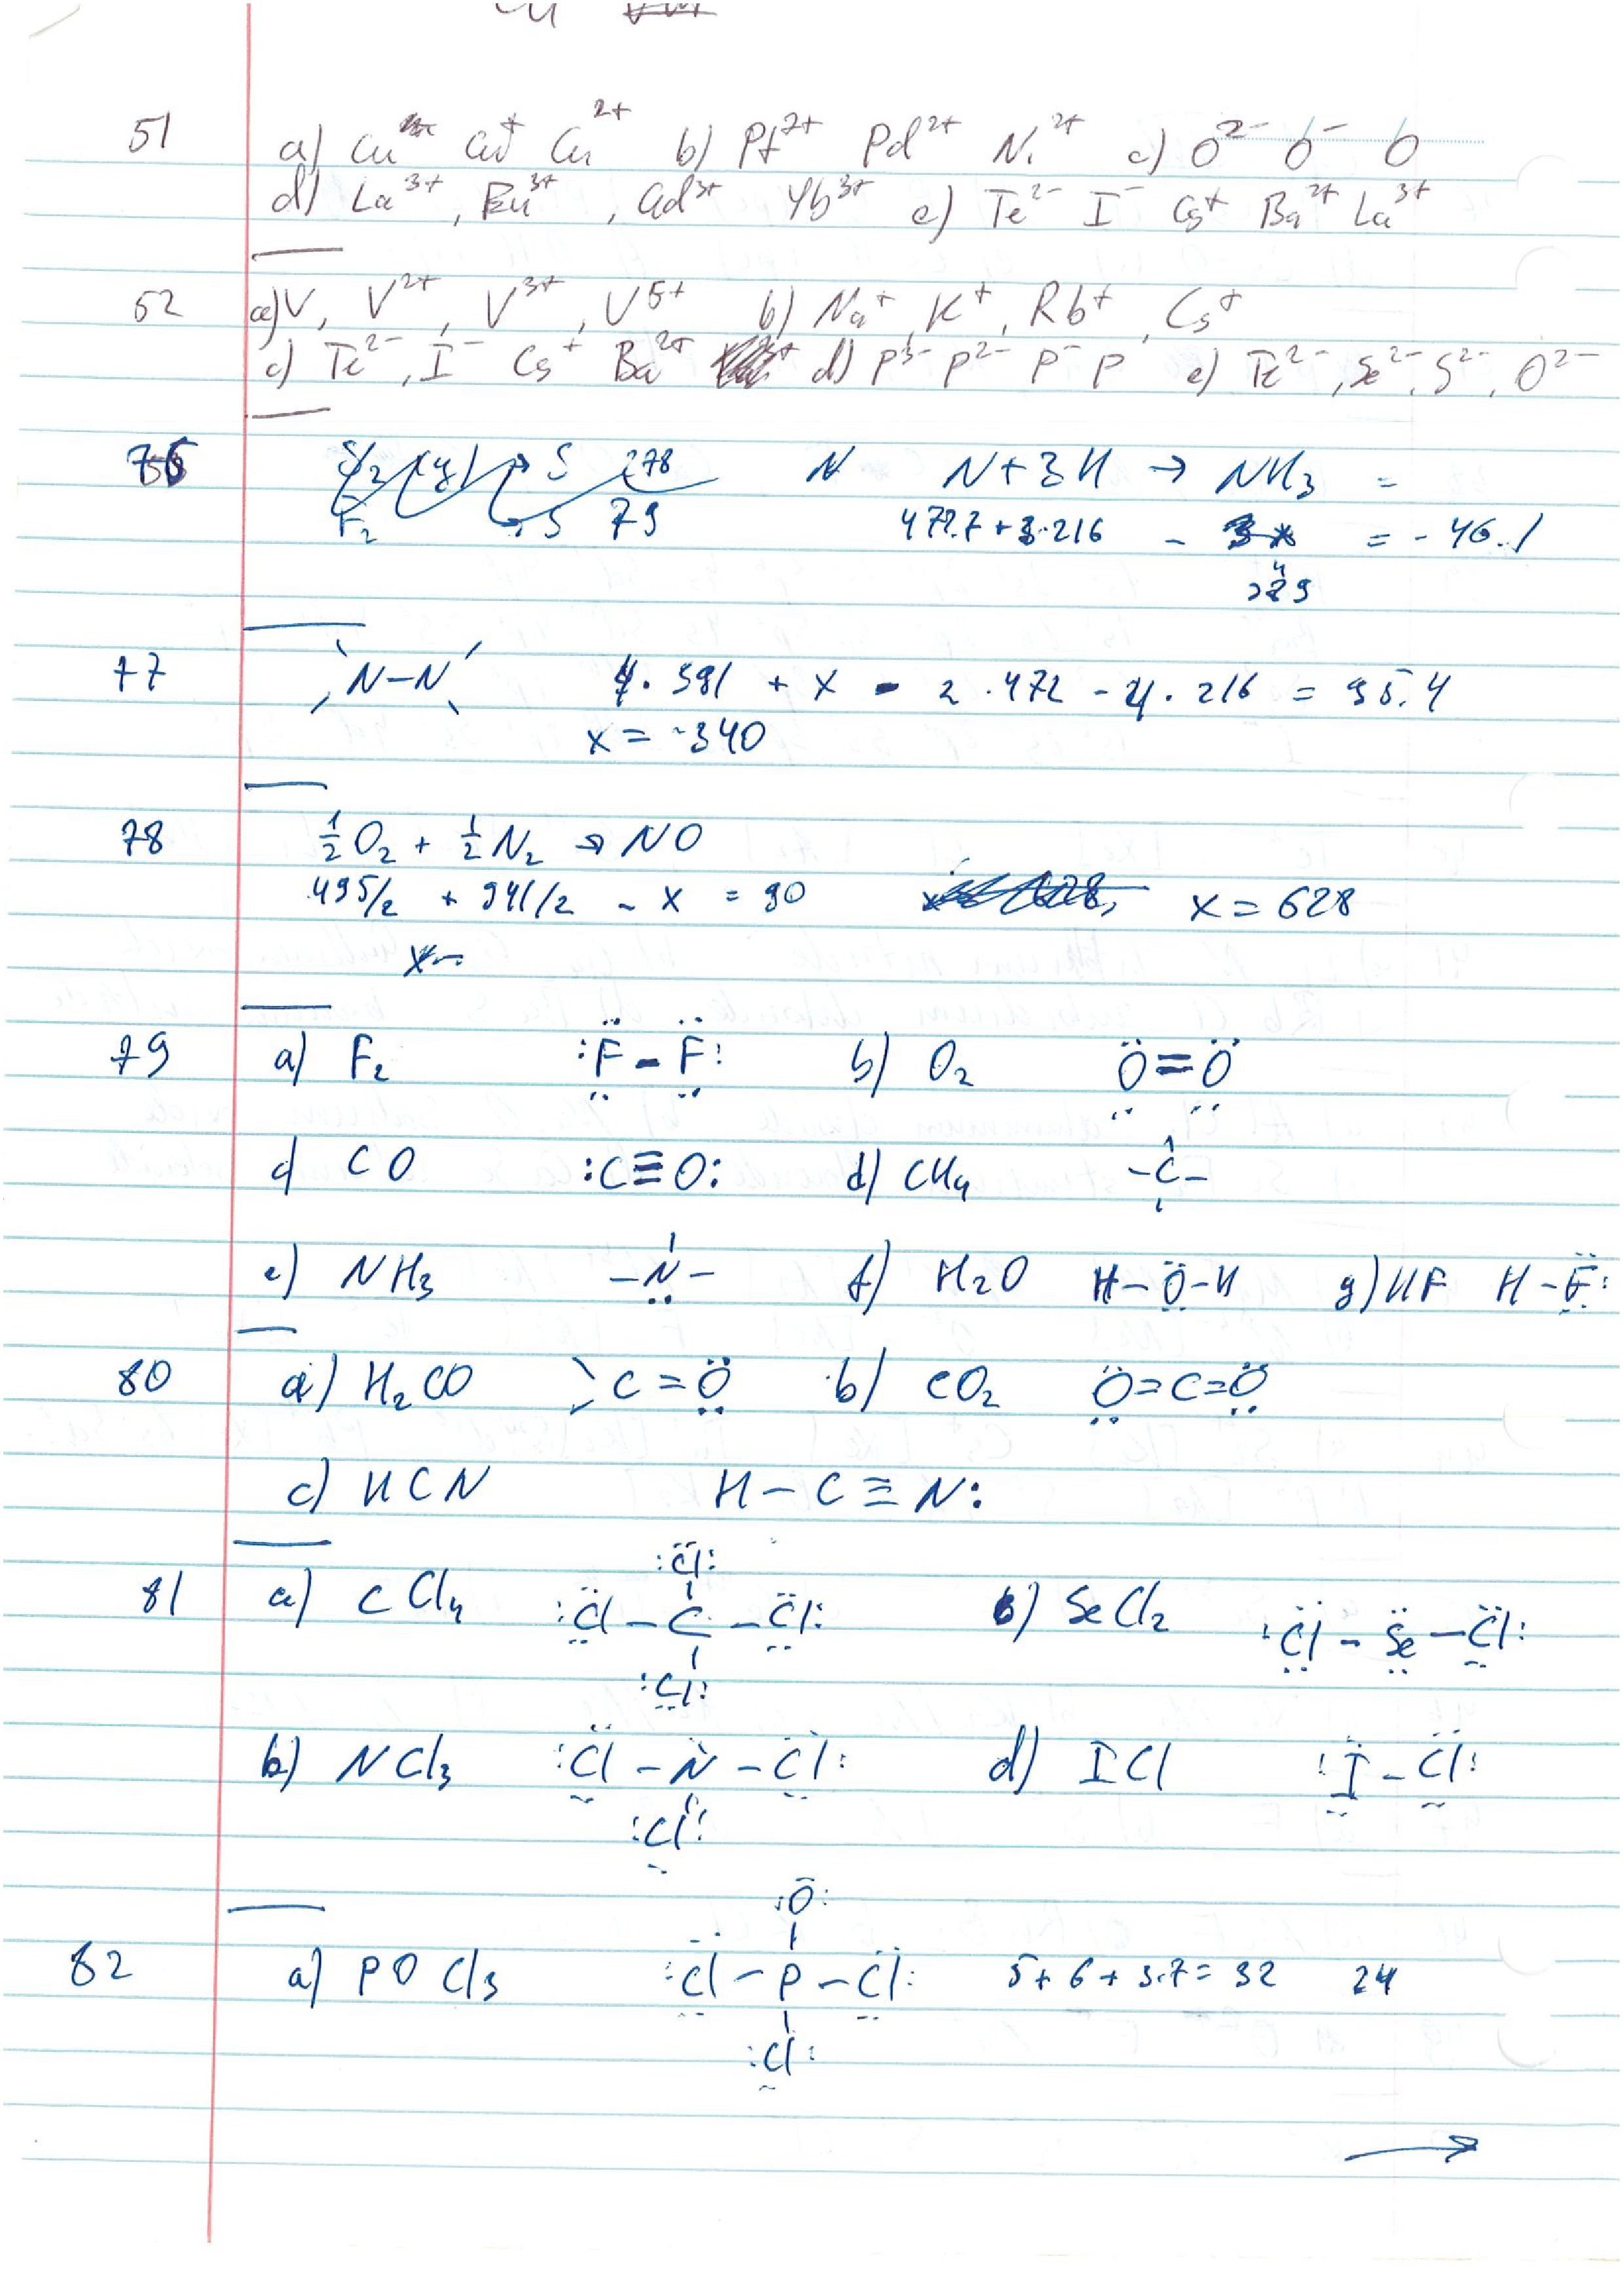 51 a) Cu Cu⁺ Cu²⁺ b) Pt²⁺ Pd²⁺ Ni²⁺ c) O²⁻ O⁻ O
d) La³⁺, Eu³⁺, Gd³⁺ Yb³⁺ e) Te²⁻ I⁻ Cs⁺ Ba²⁺ La³⁺
52 a) V, V²⁺, V³⁺, V⁵⁺ b) Na⁺, K⁺, Rb⁺, Cs⁺
c) Te²⁻, I⁻ Cs⁺ Ba²⁺ d) P³⁻ P²⁻ P⁻ P e) Te²⁻, Se²⁻, S²⁻, O²⁻
76 S 278 N N + 3H → NH₃ =
F₂ S 79 472.7 + 3·216 - = -46.1
77 N-N 4·391 + x - 2·472 - 4·216 = 95.4
x = -340
78 ½O₂ + ½N₂ → NO
495/2 + 941/2 - x = 90 x = 628
x=
79 a) F₂ :F-F: b) O₂ O=O
c) CO :C≡O: d) CH₄ -C-
e) NH₃ -N- f) H₂O H-O-H g) HF H-F:
80 a) H₂CO >C=O b) CO₂ O=C=O
c) HCN H-C≡N:
:Cl:
81 a) CCl₄ :Cl-C-Cl: b) SeCl₂ :Cl-Se-Cl:
:Cl:
b) NCl₃ :Cl-N-Cl: d) ICl :I-Cl:
:Cl:
:O:
82 a) POCl₃ :Cl-P-Cl: 5+6+3·7=32 24
:Cl:
→